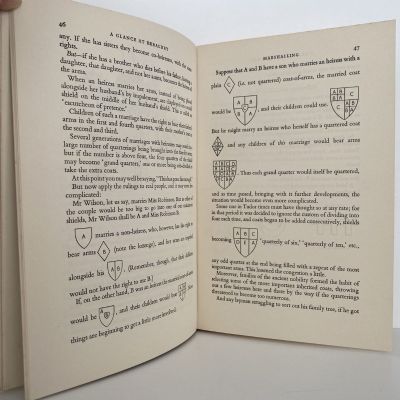 46
A GLANCE AT HERALDRY
any. If she has sisters they become co-heiresses, with the same
rights.
But—if she has a brother who dies before his father, leaving a
daughter, that daughter, and not her aunts, becomes the heiress of
the arms.
When an heiress marries, her arms, instead of being placed
alongside her husband's by impalement, are displayed on a small
shield on the middle of her husband's shield. This is called an
'escutcheon of pretence.'
Children of such a marriage have the right to bear their father's
arms in the first and fourth quarters, with their mother's in
the second and third.
Several generations of marriages with heiresses may result in a
large number of quarterings being brought into the family
but if the number is above four, the four quarters of the shield
may become 'grand quarters,' one or more being subdivided to
take the extra coats.
At this point you may well be saying,
But now apply the rules to real people, and it may not be so
complicated:
Mr Wilson, let us say, marries Miss Robinson.
the couple would be too big to go into one of our
shields, Mr Wilson shall be A and Miss Robinson B.
A
marries a non-heiress, who, however, has the right to
bear arms
B
(note the lozenge), and her arms are impaled
alongside his
A B
. (Remember, though, that their children
would not have the right to use B.)
If, on the other hand, B was an heiress the married coat of arms
would be
A
B
, and their children would bear
A B
B A
things are beginning to get a little more involved.
MARSHALLING
47
Suppose that A and B have a son who marries an heiress with a
plain
C
(i.e. not quartered) coat-of-arms, the married coat
would be
A B
C
B A
and their children could use
C
C
But he might marry an heiress who herself has a quartered coat
and any children of the marriage would bear arms
. Thus each grand quarter would itself be quartered,
and as time passed, bringing with it further developments, the
situation would become even more complicated.
Some use in Tudor times must have thought so at any rate; for
in that period it was decided to ignore the custom of dividing into
four each time, and coats with more than four quarterings started
becoming
A B C
D E A
'quarterly of six,' 'quarterly of ten,' etc.,
any odd quarter at the end being filled with a repeat of the most
important arms. This lessened the congestion a little.
Moreover, families of the ancient nobility formed the habit of
selecting some of the more important inherited coats, throwing
out a few heiresses here and there by the way if the quarterings
threatened to become too numerous.
And any layman struggling to sort out his family tree, if he got